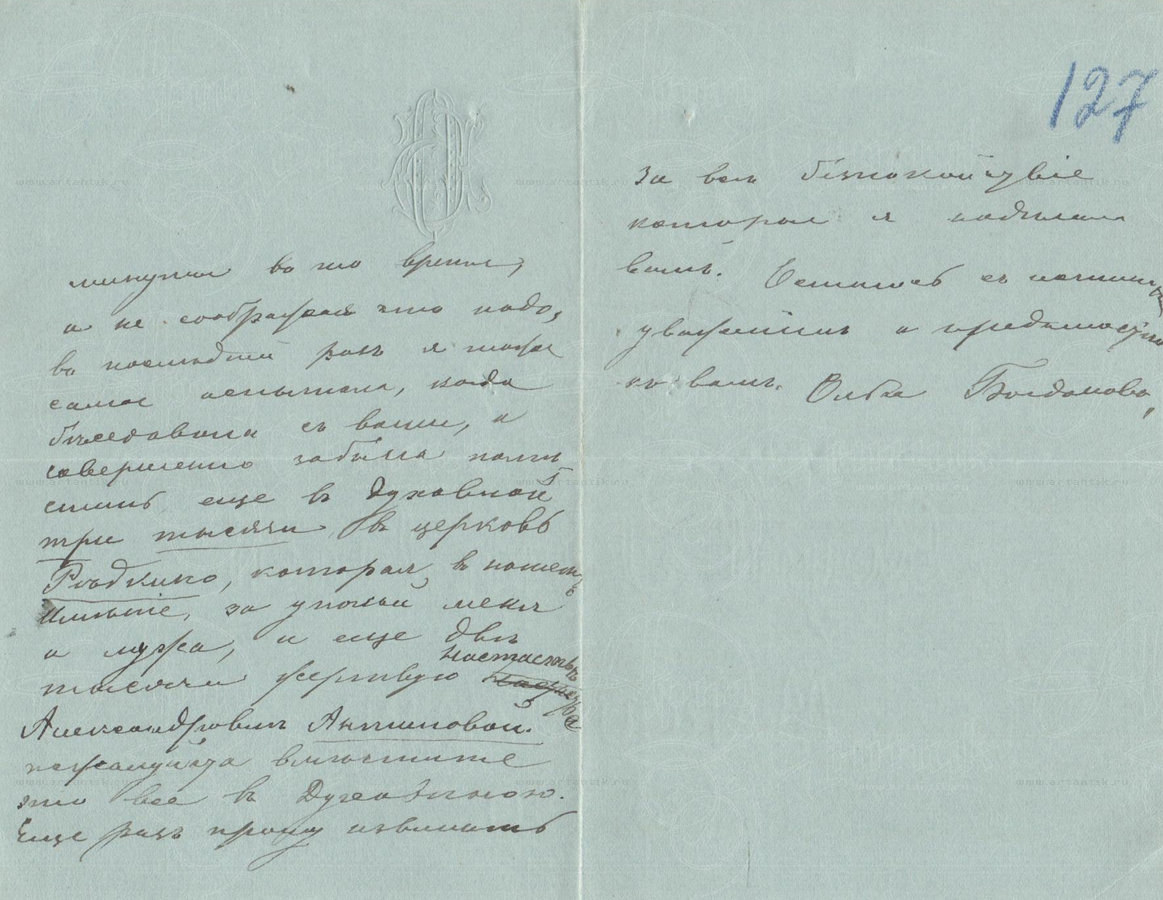 минутами во то время,
а не соображая что надо,
въ последнiй разъ я тоже
самое испытала, когда
беседовала съ вами, и
совершенно забыла поме-
стить еще въ Духовной
три тысячи въ церковь
Редкино, которая въ нашемъ
именiе, за упокой меня
и мужа, и еще две
тысячи жертвую Настасье
Александровне Антиповой.
пожалуйста вместите
это все въ Духовную.
Еще разъ прошу извинить
127
за все безпокойствiе
которое я наделала
вамъ. Остаюсь съ истиннымъ
уваженiемъ и преданностью
къ вамъ. Ольга Богданова,